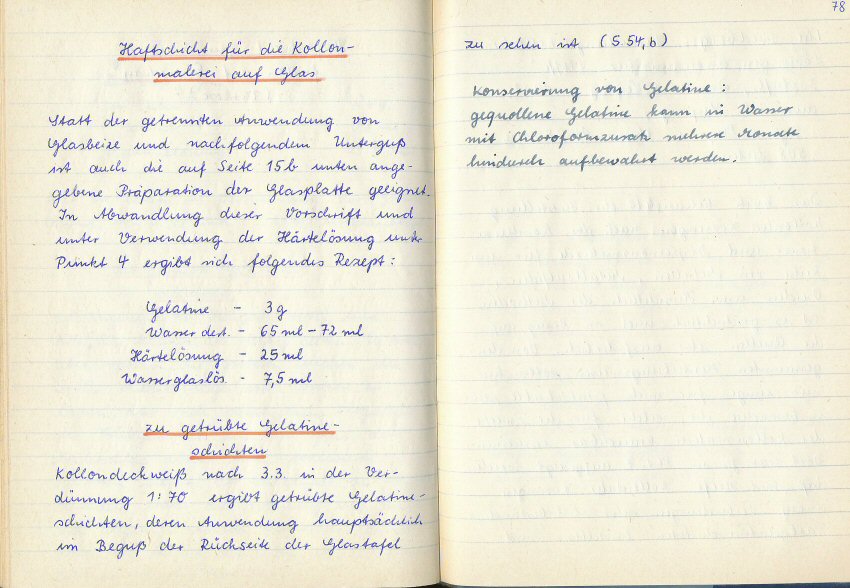 Haftschicht für die Kollon-
malerei auf Glas
Statt der getrennten Anwendung von
Glasbeize und nachfolgendem Unterguß
ist auch die auf Seite 15b unten ange-
gebene Präparation der Glasplatte geeignet.
In Abwandlung dieser Vorschrift und
unter Verwendung der Härtelösung unter
Punkt 4 ergibt sich folgendes Rezept:
Gelatine - 3g
Wasser dest. - 65 ml - 72 ml
Härtelösung - 25 ml
Wasserglaslös. - 7,5 ml
zu getrübte Gelatine-
schichten
Kollondeckweiß nach 3.3. in der Ver-
dünnung 1:70 ergibt getrübte Gelatine-
schichten, deren Anwendung hauptsächlich
im Beguß der Rückseite der Glastafel
78
zu sehen ist (S 54,b)
Konservierung von Gelatine:
gequollene Gelatine kann in Wasser
mit Chloroformzusatz mehrere Monate
hindurch aufbewahrt werden.